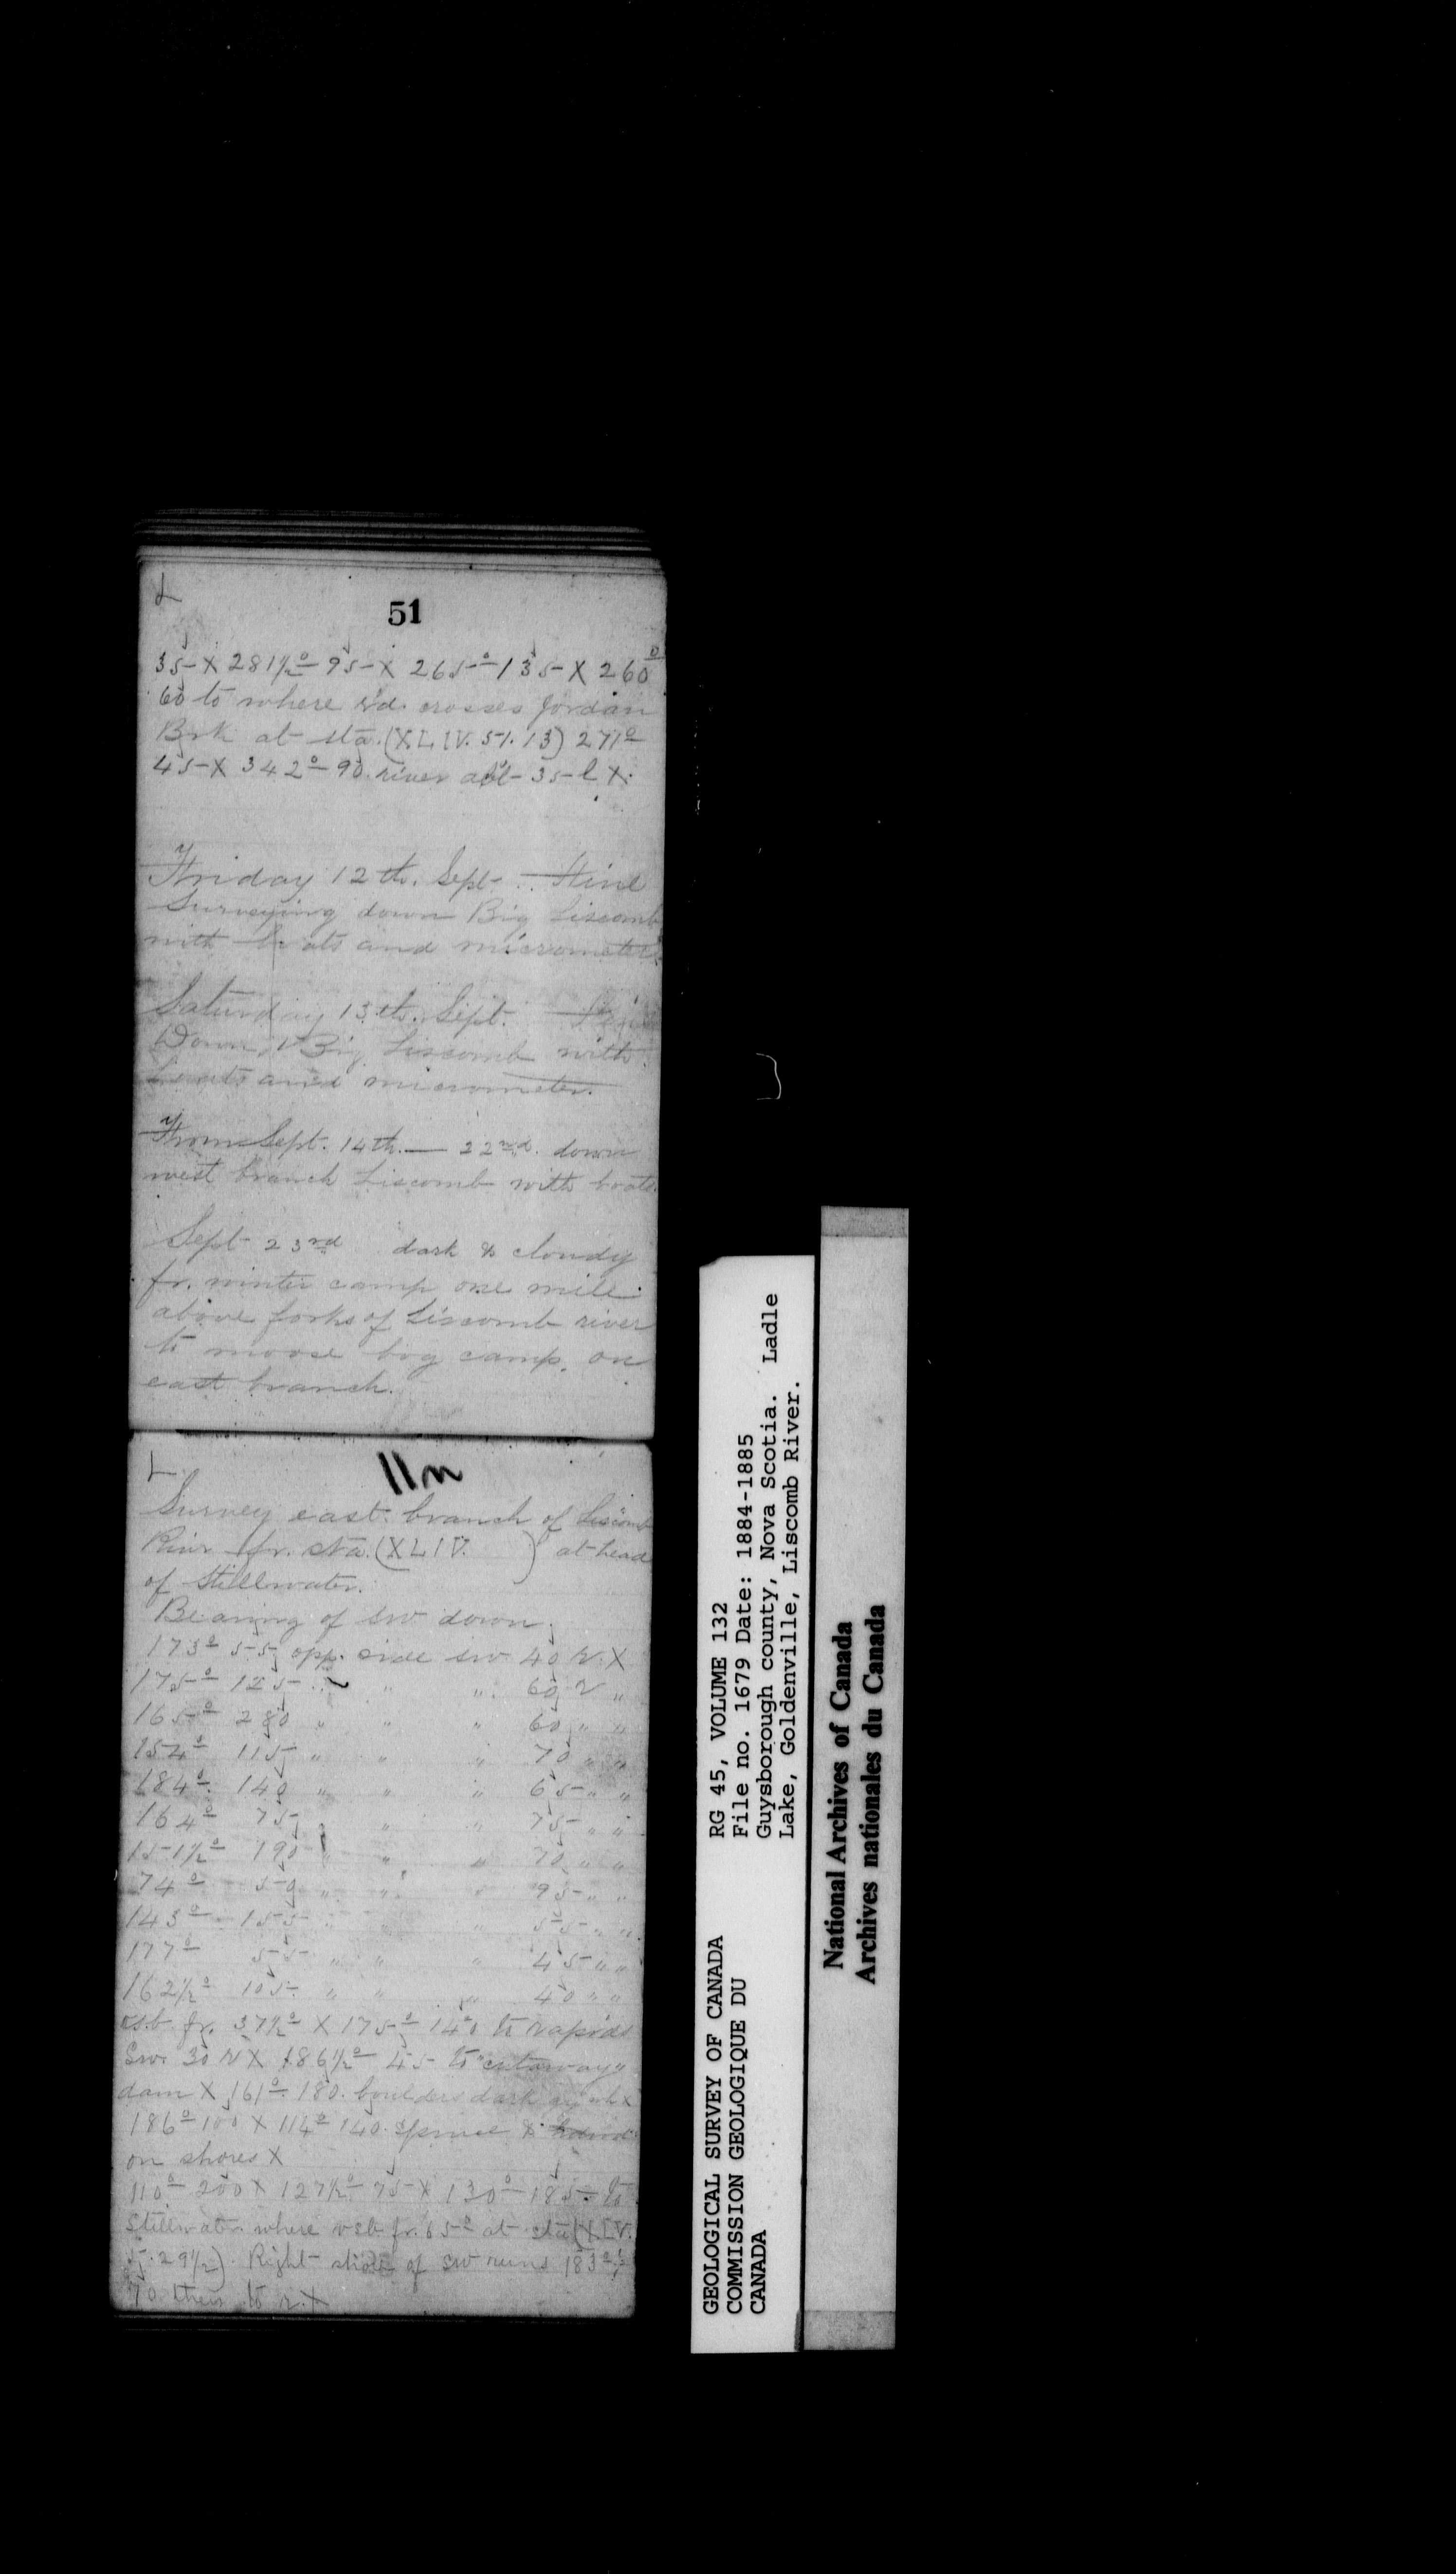 L
51
35 X 281½° 95 X 265° 135 X 260°
60 to where rd. crosses Jordan
Brk at sta. (XLIV. 51. 13) 271°
45 X 342° 90 river abt 35 l X.
Friday 12th. Sept. Fine
Surveying down Big Liscomb
with boats and micrometer.
Saturday 13th. Sept. Fine
Down Big Liscomb with
boats and micrometer.
From Sept. 14th. — 22nd. down
west branch Liscomb with boats.
Sept 23rd dark & cloudy
fr. winter camp one mile
above forks of Liscomb river
to moose bog camp. on
east branch.
L
11n
Survey east branch of Liscomb
River fr. sta. (XLIV. ) at head
of Stillwater.
Bearing of sw down.
173° 55 opp. side sw 40 r. X
175° 125 " " " 60 r "
165° 280 " " " 60 " "
154° 115 " " " 70 " "
184° 140 " " " 65 " "
164° 75 " " 75 " "
151½° 190 " " " 70 " "
74° 50 " " " 95 " "
143° 155 " " " 55 " "
177° 55 " " " 45 " "
162½° 105 " " " 40 " "
rsb fr. 37½° X 175° 140 to rapids
Sw. 30 r X 186½° 45 to "cutaway"
dam X 161° 180. boulders dark
186° 100 X 114° 140. spruce &
on shores X
110° 200 X 127½° 75 X 130° 185 to
Stillwater where rsb fr. 65° at sta (XLIV.
55. 29½). Right shore of sw runs 183°
70 then to r. X
GEOLOGICAL SURVEY OF CANADA
COMMISSION GEOLOGIQUE DU
CANADA
RG 45, VOLUME 132
File no. 1679 Date: 1884-1885
Guysborough county, Nova Scotia. Ladle
Lake, Goldenville, Liscomb River.
National Archives of Canada
Archives nationales du Canada